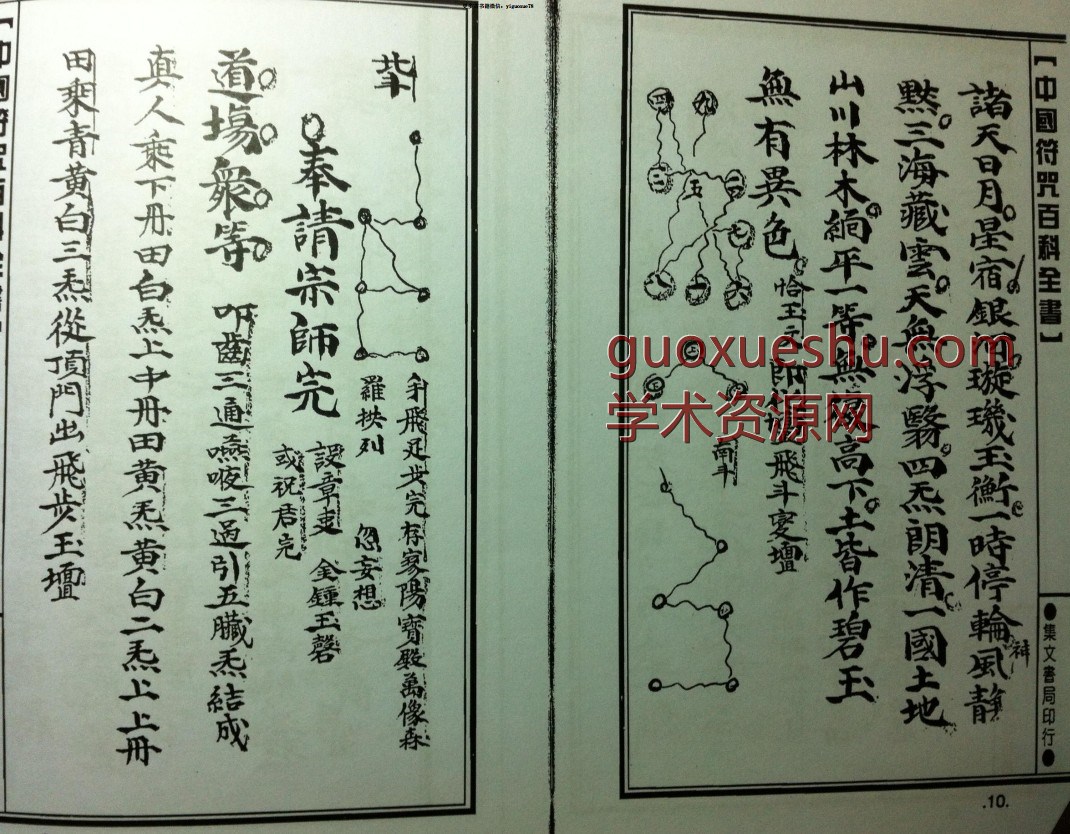 【中國符咒百科全書】
諸天日月星宿銀河璇璣玉衡一時停輪風靜
默三海藏雲天無浮翳四炁朗清一國土地
山川林木緬平一等無高下土皆作碧玉
無有異色
飛斗变壇
四 九
二
五
七
八 三 六
南斗
●集文書局印行●
.10.
guoxueshu.com
学术资源网
步完存寥陽寶殿萬像森
羅拱列
忽妄想
奉請宗師完
設章吏 金鍾玉磬
或祝君完
道場衆等
叩齒三通嚥液三過引五臟炁結成
真人乘下丹田白炁上中丹田黄炁黄白二炁上上丹
田乘青黄白三炁從頂門出飛步玉壇
yiguoxue78